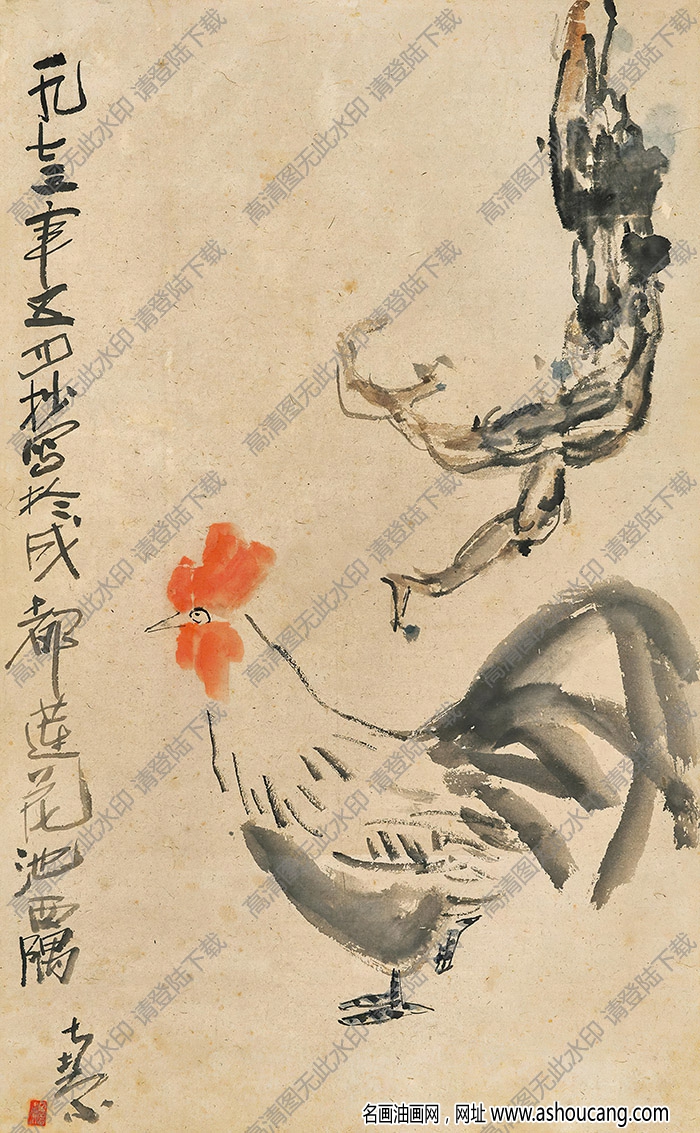 一九七三年五月杪寫於成都蓮花池西隅
高清图无此水印 请登陆下载
名画油画网，网址 www.ashoucang.com